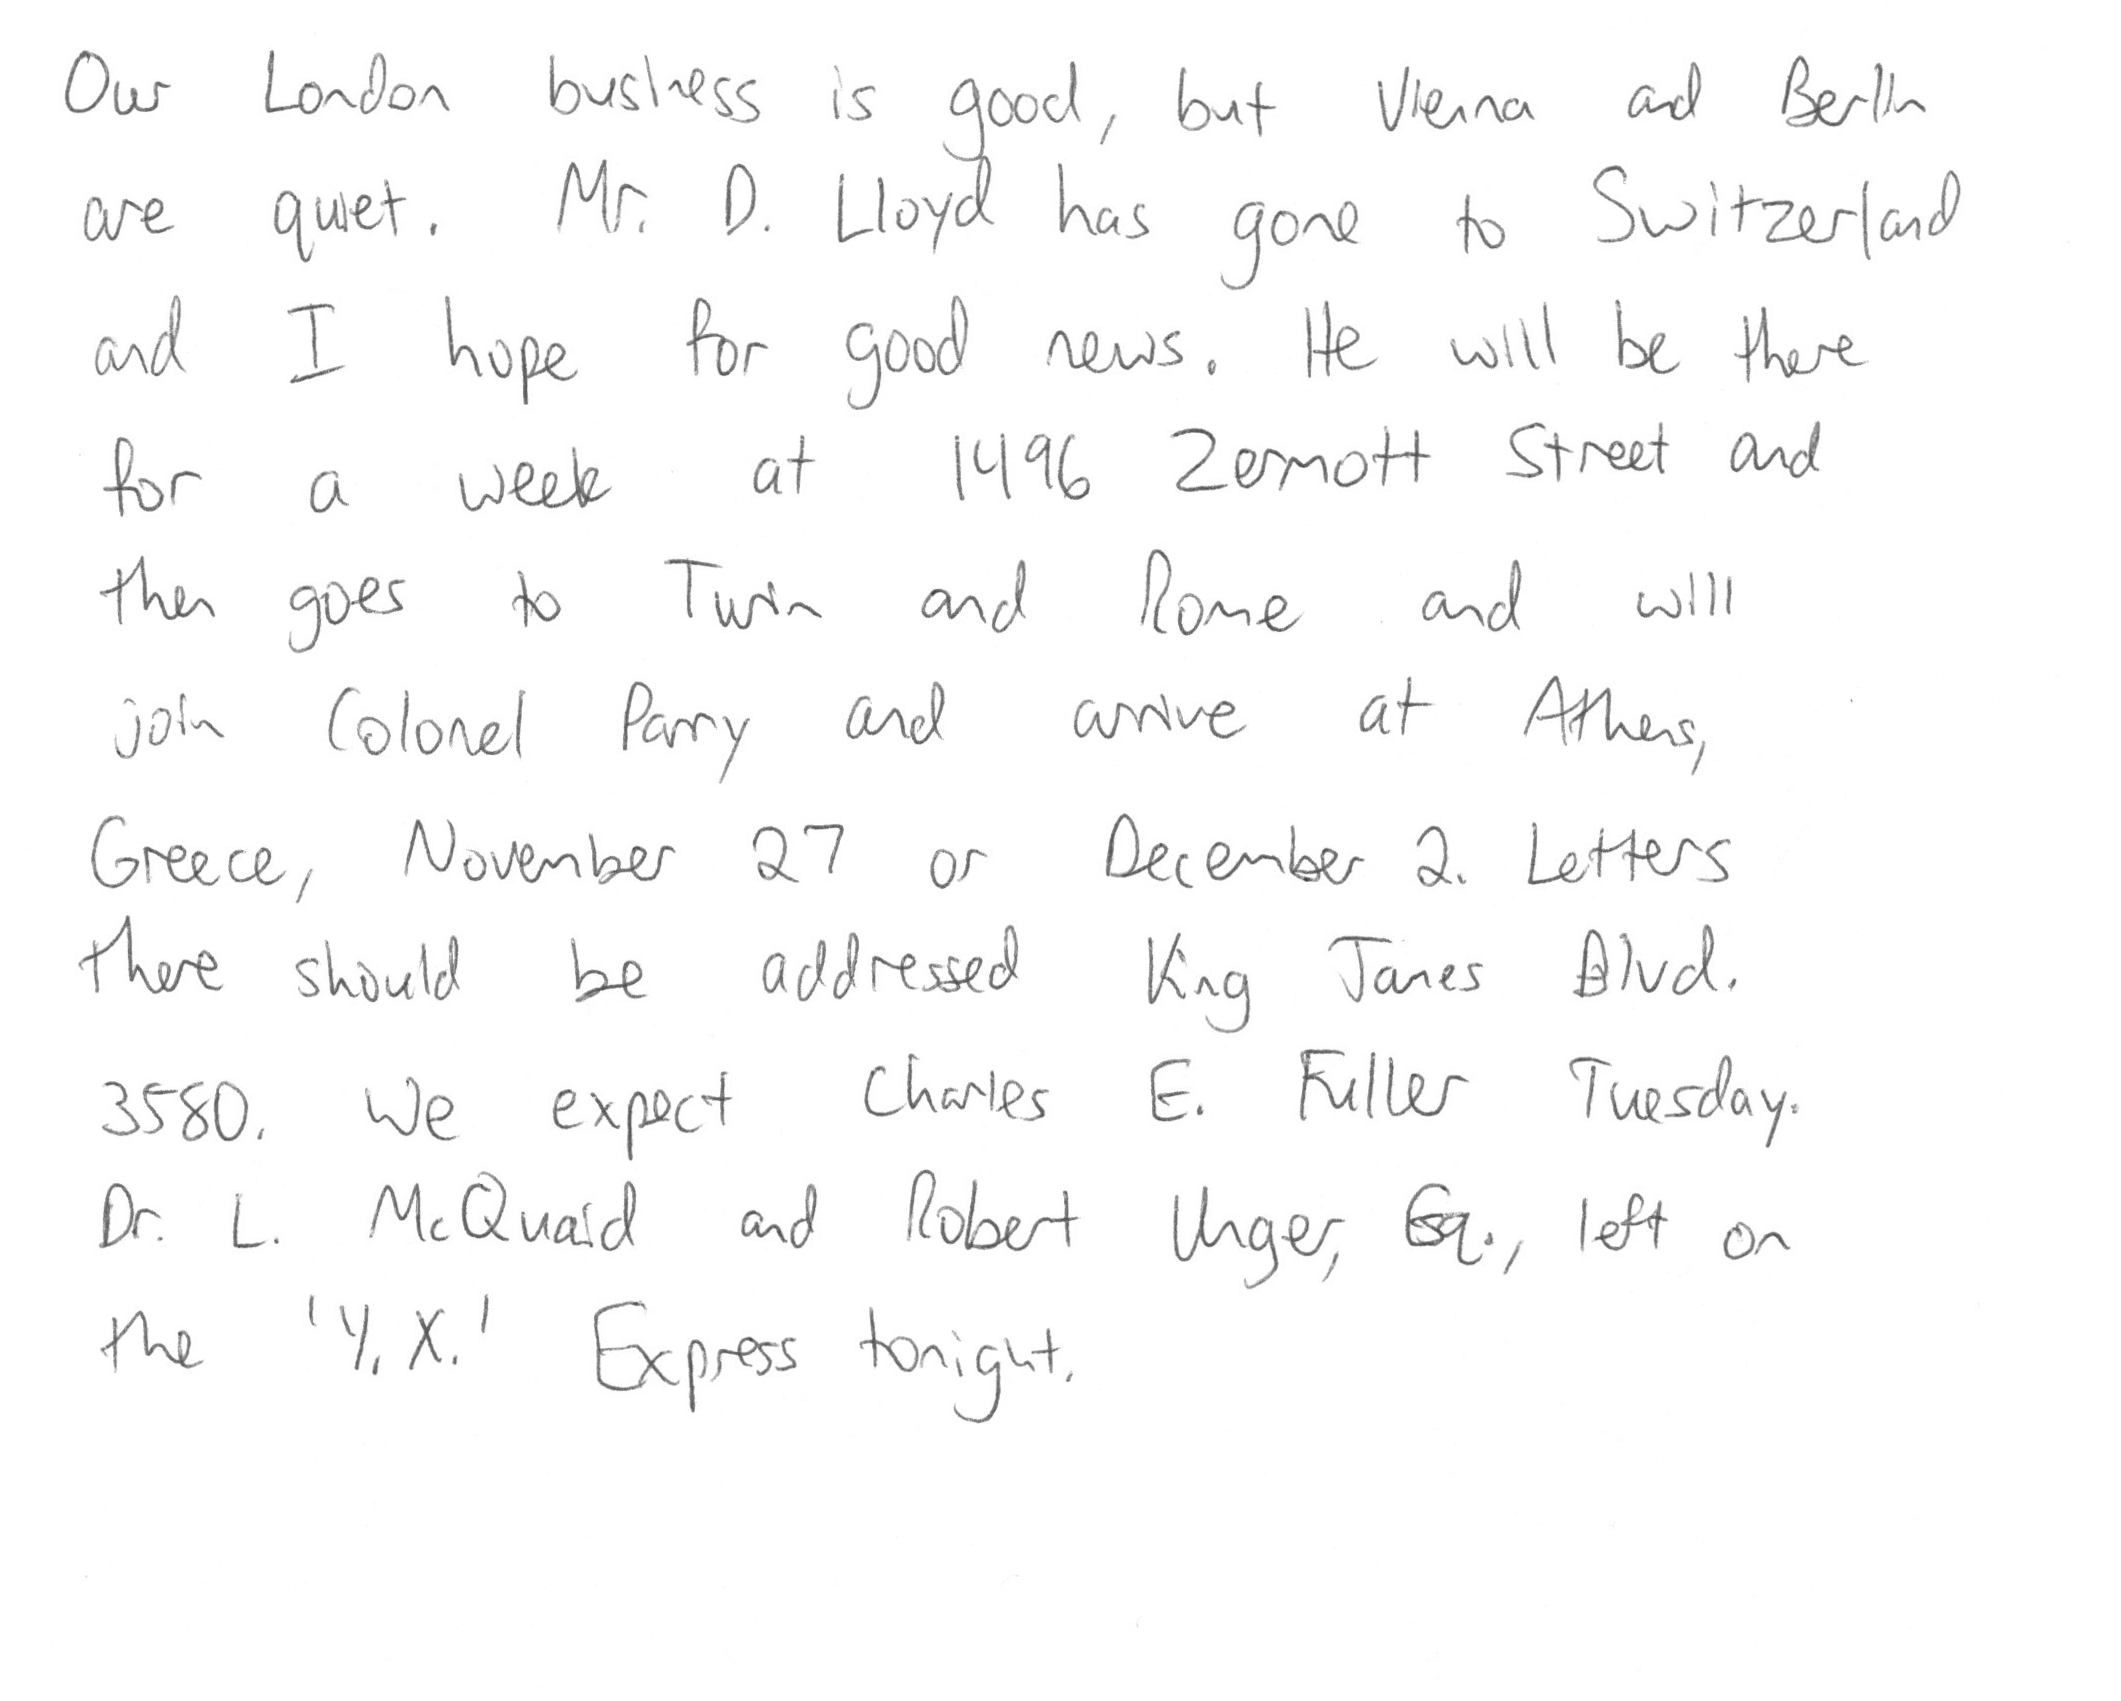 Our London business is good, but Vienna and Berlin
are quiet. Mr. D. Lloyd has gone to Switzerland
and I hope for good news. He will be there
for a week at 1496 Zermott Street and
then goes to Turin and Rome and will
join Colonel Parry and arrive at Athens,
Greece, November 27 or December 2. Letters
there should be addressed King James Blvd.
3580. We expect Charles E. Fuller Tuesday.
Dr. L. McQuaid and Robert Unger, Esq., left on
the 'Y.X.' Express tonight.